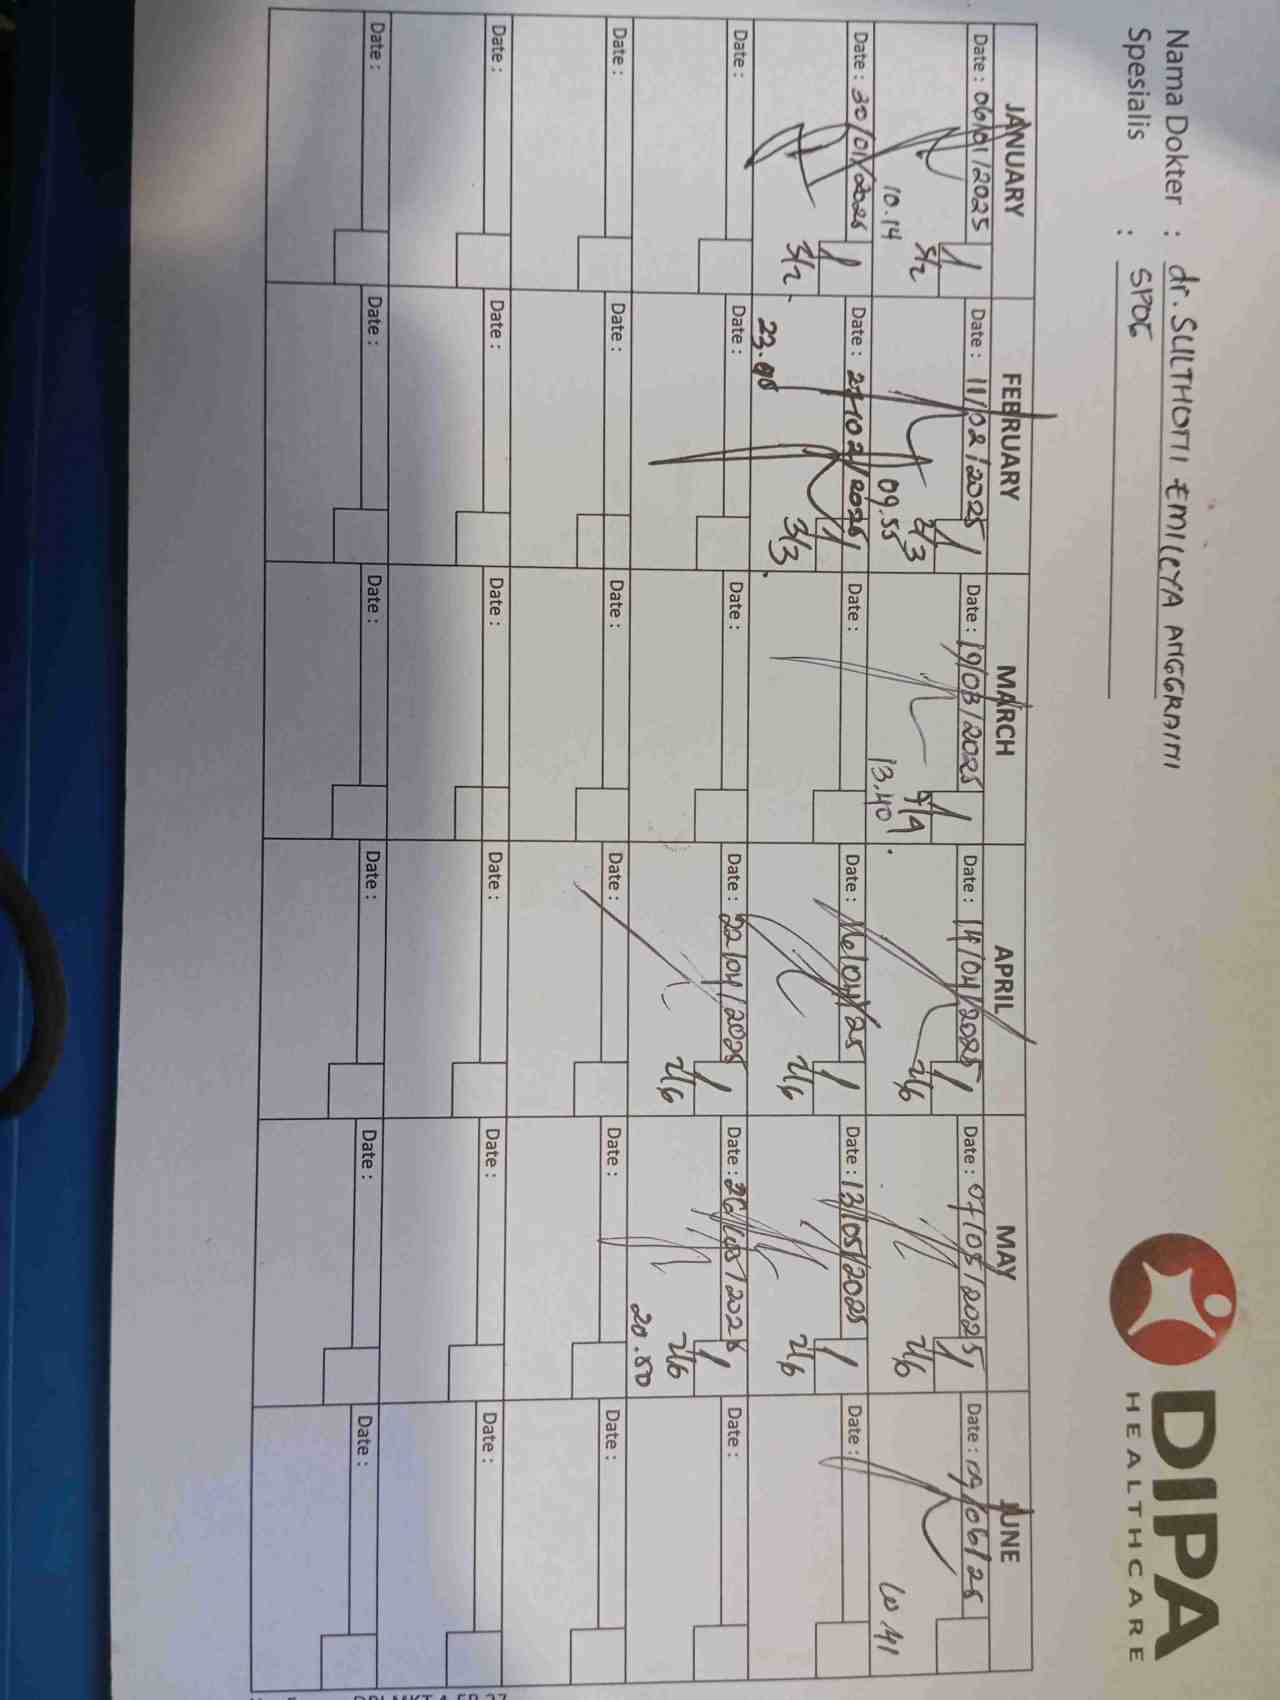 Nama Dokter : dr. SULTHONI EMILCYA ANGGRAINI
Spesialis : SPOG
DIPA
HEALTHCARE
JANUARY FEBRUARY MARCH APRIL MAY JUNE
Date : 06/01/2025 Date : 11/02/2025 Date : 19/03/2025 Date : 14/04/2025 Date : 07/05/2025 Date : 09/06/25
5/2 3/3 2/6 2/6
10.14 09.55 13.40
Date : 30/01/2025 Date : /02/2025 Date : Date : 16/04/25 Date : 13/05/2025 Date :
3/2 3/3 2/6 2/6
Date : Date : Date : Date : 22/04/2025 Date : 26/05/2025 Date :
2/6 2/6
20.50
Date : Date : Date : Date : Date : Date :
Date : Date : Date : Date : Date : Date :
Date : Date : Date : Date : Date : Date :